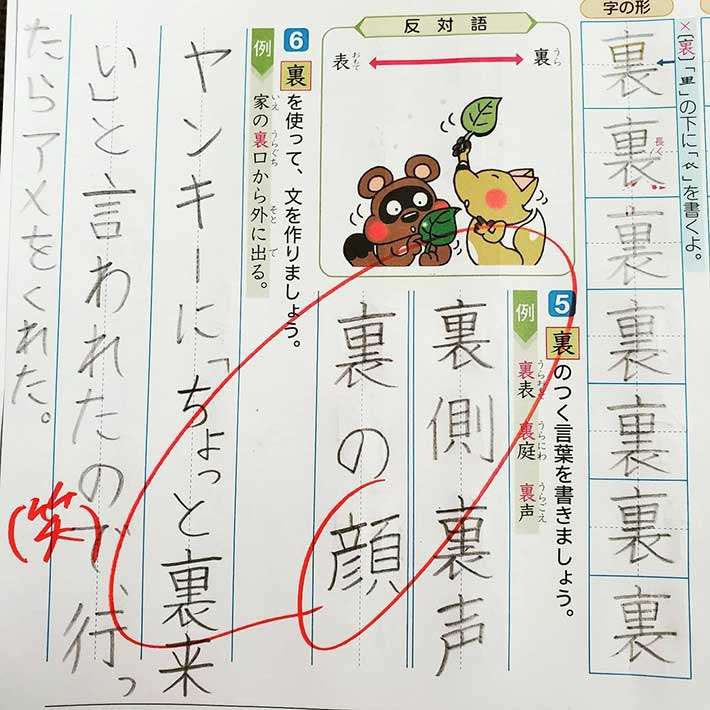 字の形
×[裏]「里」の下に「𧘇」を書くよ。
裏
裏
長く
裏
裏
裏
裏
裏
反対語
表 おもて
裏 うら
5 裏のつく言葉を書きましょう。
例 裏表 うらおもて 裏庭 うらにわ 裏声 うらごえ
裏側 裏声
裏の顔
6 裏を使って、文を作りましょう。
例 家の裏口から外に出る。
いえ うらぐち そと で
ヤンキーに「ちょっと裏来
い」と言われたので、行っ
たらアメをくれた。
(笑)